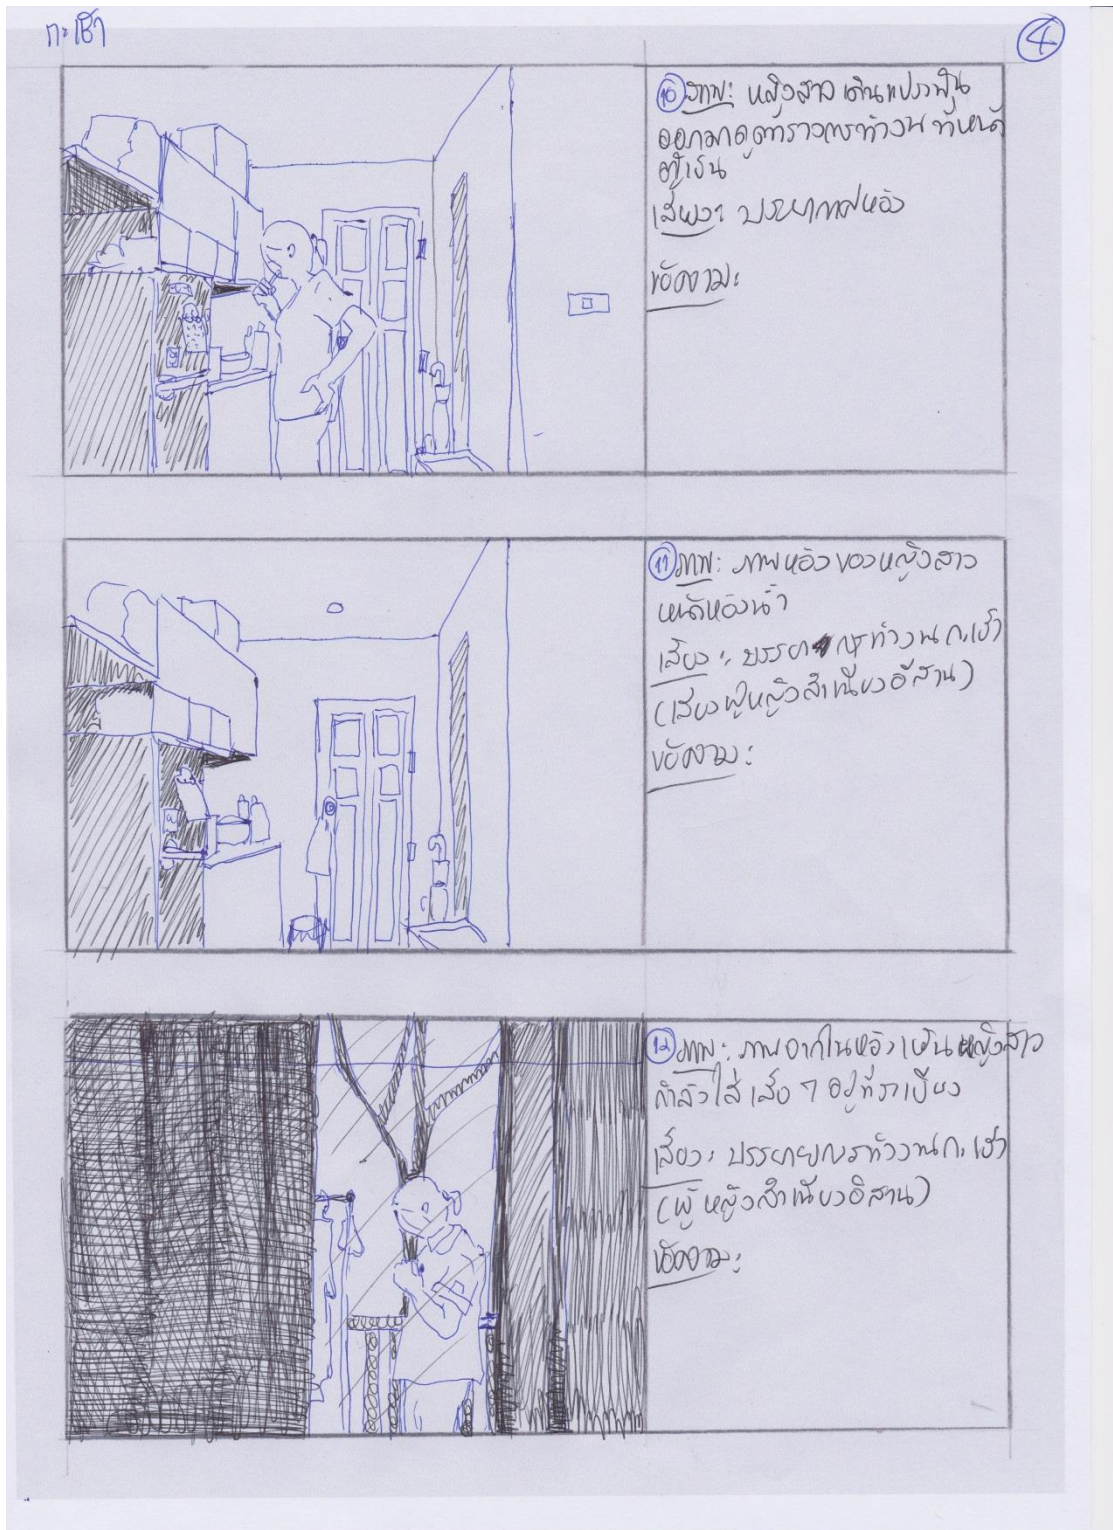 กะเช้า
4
10 ภาพ: หญิงสาว เดินแปรงฟัน
ออกมาดูตารางการทำงาน ที่หน้า
ตู้เย็น
เสียง: บรรยากาศห้อง
ข้อความ:
11 ภาพ: ภาพห้องของหญิงสาว
หน้าห้องน้ำ
เสียง: บรรยาย การทำงาน กะเช้า
(เสียงผู้หญิงสำเนียงอีสาน)
ข้อความ:
12 ภาพ: ภาพจากในห้อง เห็น หญิงสาว
กำลังใส่เสื้อ ๆ อยู่ที่ระเบียง
เสียง: บรรยายการทำงานกะเช้า
(ผู้หญิงสำเนียงอีสาน)
ข้อความ: